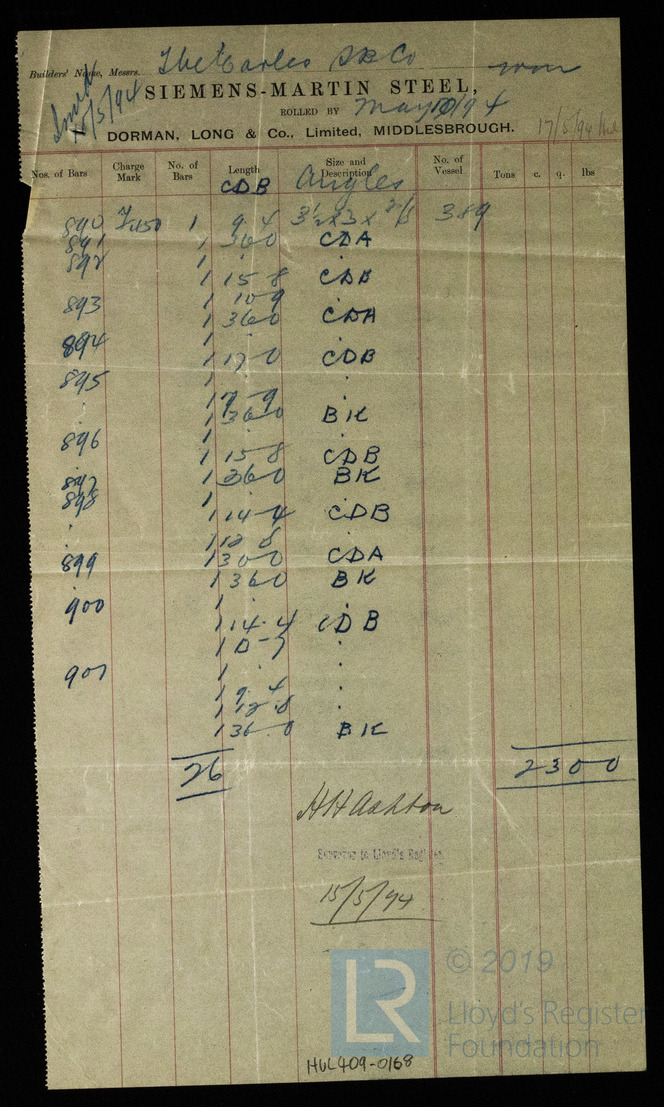 Builders' Name, Messrs. The Earles S & E Co
15/5/94
SIEMENS-MARTIN STEEL,
ROLLED BY May 10/94
DORMAN, LONG & Co., Limited, MIDDLESBROUGH.
17/5/94
Nos. of Bars Charge Mark No. of Bars Length Size and Description No. of Vessel Tons c. q. lbs
CDB Angles
890 1 9.4 3½ x 3 x 389
891 1 360 CDA
892 1 .
1 15-8 CDB
1 10-9 .
893 1 360 CDA
894 1 .
1 17-0 CDB
895 1 .
. 1 17-9 .
1 36-0 BK
896 1 .
1 15-8 CDB
897 1 360 BK
898 1 .
1 14-4 CDB
. 1 12 8 .
899 1 300 CDA
1 360 BK
900 1 .
1 14-4 CDB
1 10-7 .
901 1 .
1 9-4 .
1 12-8 .
1 36-0 BK
26 2300
H H Ashton
Surveyor to Lloyd's Register
15/5/94
LR © 2019
Lloyd's Register
Foundation
HUL409-0168